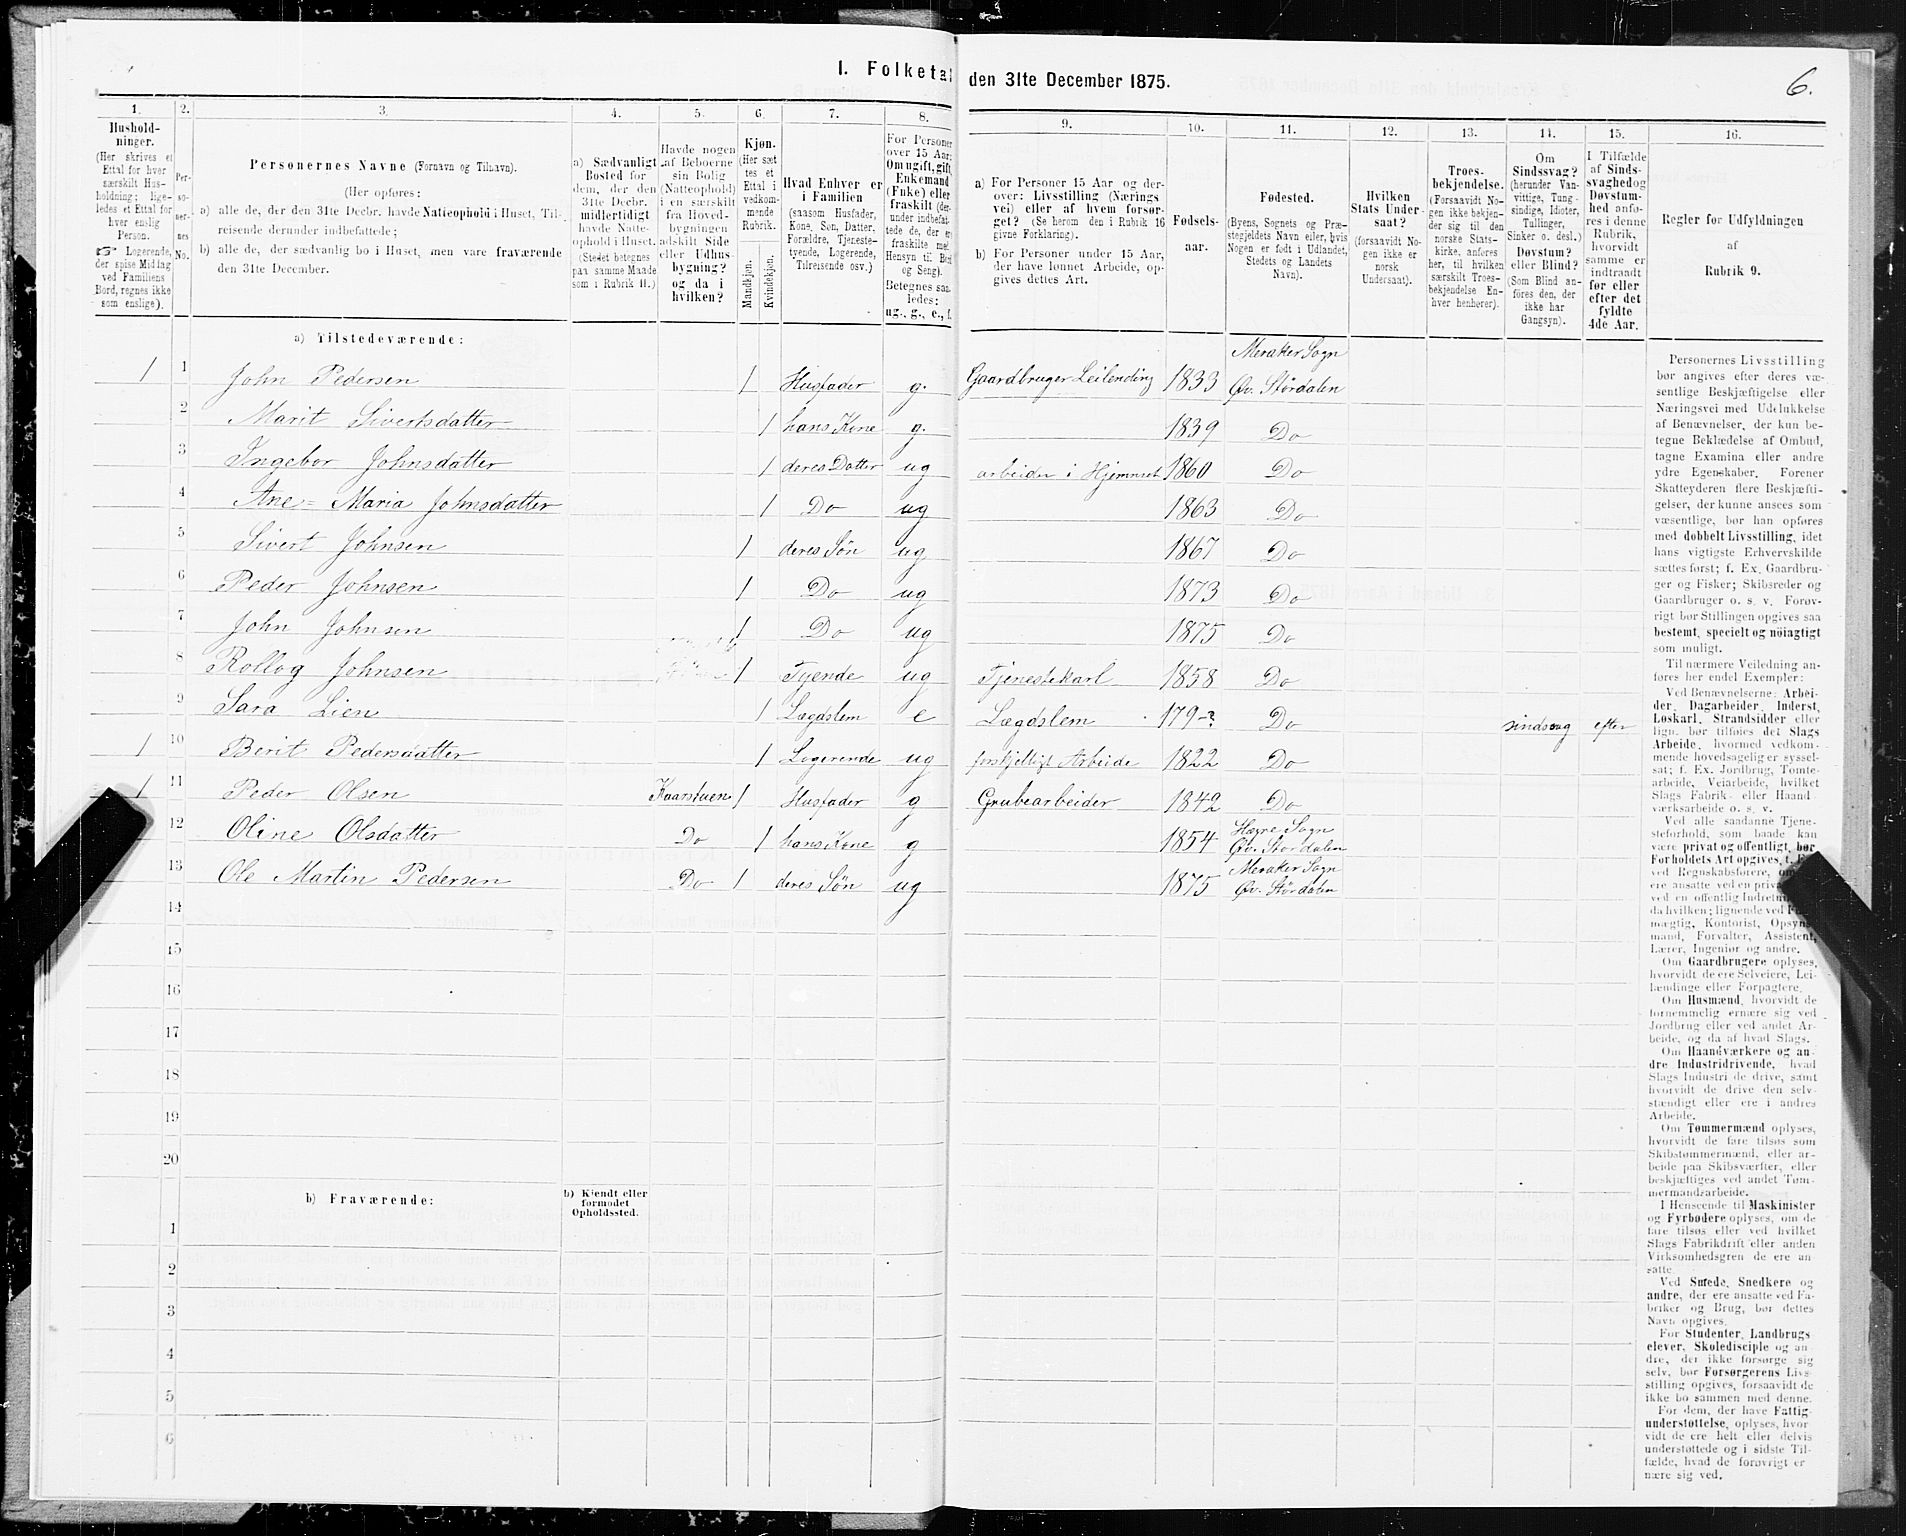 I. Folketal
den 31te December 1875.
6.
1. 2. 3. 4. 5. 6. 7. 8. 9. 10. 11. 12. 13. 14. 15. 16.
Hushold-
ninger.
(Her skrives et
Ettal for hver
særskilt Hus-
holdning; lige-
ledes et Ettal for
hver enslig
Person.
☞ Logerende,
der spise Middag
ved Familiens
Bord, regnes ikke
som enslige).
Per-
so-
ner-
nes
No.
Personernes Navne (Fornavn og Tilnavn).
(Her opføres:
a) alle de, der den 31te Decbr. havde Natteophold i Huset, Til-
reisende derunder indbefattede;
b) alle de, der sædvanlig bo i Huset, men vare fraværende
den 31te December.
a) Sædvanligt
Bosted for
dem, der den
31te Decbr.
midlertidigt
havde Natte-
ophold i Huset.
(Stedet betegnes
paa samme Maade
som i Rubrik 11.)
Havde nogen
af Beboerne
sin Bolig
(Natteophold)
i en særskilt
fra Hoved-
bygningen
adskilt Side
eller Udhus-
bygning?
og da i
hvilken?
Kjøn.
(Her sæt
tes et
Ettal i
vedkom-
mende
Rubrik.
Mandkjøn.
Kvindekjøn.
Hvad Enhver er
i Familien
(saasom Husfader,
Kone, Søn, Datter.
Forældre, Tjeneste-
tyende, Logerende,
Tilreisende osv.)
For Personer
over 15 Aar;
Om ugift, gift,
Enkemand
(Enke) eller
fraskilt (der-
under indbefat-
tede de, der er
fraskilte med
Hensyn til Bord
og Seng).
Betegnes saa-
ledes:
ug., g., e., f.
a) For Personer 15 Aar og der-
over: Livsstilling (Nærings
vei) eller af hvem forsør-
get? (Se herom den i Rubrik 16
givne Forklaring).
b) For Personer under 15 Aar,
der have lønnet Arbeide, op-
gives dettes Art.
Fødsels-
aar.
Fødested.
(Byens, Sognets og Præ-
stegjeldets Navn eller, hvis
Nogen er født i Udlandet,
Stedets og Landets
Navn).
Hvilken
Stats Under-
saat?
(forsaavidt No-
gen ikke er
norsk
Undersaat).
Troes-
bekjendelse.
(Forsaavidt No-
gen ikke bekjen-
der sig til den
norske Stats-
kirke, anføres
her, til hvilken
særskilt Troes-
bekjendelse En-
hver henhører).
Om
Sindssvag?
(herunder Van-
vittige, Tung-
sindige, Idioter,
Tullinger,
Sinker o. desl.)
Døvstum?
eller Blind?
(Som Blind an-
føres den, der
ikke har
Gangsyn).
I Tilfælde
af Sinds-
svaghed og
Døvstum-
hed anfø-
res i denne
Rubrik,
hvorvidt
samme er
indtraadt
før eller
efter det
fyldte
4de Aar.
Regler for Udfyldningen
af
Rubrik 9.
a) Tilstedeværende:
1 1 John Pedersen 1 Husfader g. Gaardbruger Leilending 1833 Meraker Sogn
Øv. Stördalen
2 Marit Sivertsdatter 1 hans Kone g. 1839 Do
3 Ingebor Johnsdatter 1 deres Datter ug arbeider i Hjemmet 1860 Do
4 Ane=Maria Johnsdatter 1 Do ug 1863 Do
5 Sivert Johnsen 1 deres Søn ug 1867 Do
6 Peder Johnsen 1 Do ug 1873 Do
7 John Johnsen 1 Do ug 1875 Do
8 Rollog Johnsen 1 Tyende ug Tjenestekarl 1858 Do
9 Sara Lien 1 Lægdslem e Lægdslem 179-? Do sindsvag efter
1 10 Berit Pedersdatter 1 Logerende ug forskjelligt Arbeide 1822 Do
1 11 Peder Olsen Kaarstuen 1 Husfader g Grubearbeider 1842 Do
12 Oline Olsdatter Do 1 hans Kone g 1854 Hegre Sogn
Øv. Stordalen
13 Ole Martin Pedersen Do 1 deres Søn ug 1875 Meraker Sogn
Øv. Stördalen
14
15
16
17
18
19
20
b) Fraværende:
b) Kjendt eller
formodet
Opholdssted.
1
2
3
4
5
6
Personernes Livsstilling
bør angives efter deres væ-
sentlige Beskjæftigelse eller
Næringsvei med Udelukkelse
af Benævnelser, der kun be-
tegne Beklædelse af Ombud,
tagne Examina eller andre
ydre Egenskaber. Forener
Skatteyderen flere Beskjæfti-
gelser, der kunne ansees som
væsentlige, bør han opføres
med dobbelt Livsstilling, idet
hans vigtigste Erhvervskilde
sættes først; f. Ex. Gaardbru-
ger og Fisker; Skibsreder og
Gaardbruger o. s. v. Forøv-
rigt bør Stillingen opgives saa
bestemt, specielt og nöiagtigt
som muligt.
Til nærmere Veiledning an-
føres her endel Exempler:
Ved Benævnelserne: Arbei-
der, Dagarbeider, Inderst,
Løskarl, Strandsidder eller
lign. bør tilføies det Slags
Arbeide, hvormed vedkom-
mende hovedsagelig er syssel-
sat; f. Ex. Jordbrug, Tomte-
arbeide, Veiarbeide, hvilket
Slags Fabrik- eller Haand
værksarbeide o. s. v.
Ved alle saadanne Tjene-
steforhold, som baade kan
være privat og offentligt, bør
Forholdets Art opgives,
ved Regnskabsførere,
ere ansatte ved en
ved en offentlig
da hvilken; lignende ved
mægtig, Kontorist, Opsyns-
mand, Forvalter, Assistent,
Lærer, Ingeniør og andre.
Om Gaardbrugere oplyses,
hvorvidt de ere Selveiere, Lei-
lændinge eller Forpagtere.
Om Husmænd, hvorvidt de
fornemmelig ernære sig ved
Jordbrug eller ved andet Ar-
beide, og da af hvad Slags.
Om Haandværkere og an-
dre Industridrivende, hvad
Slags Industri de drive, samt
hvorvidt de drive den selv-
stændigt eller ere i andres
Arbeide.
Om Tømmermænd oplyses,
hvorvidt de fare tilsøs som
Skibstømmermænd, eller ar-
beide paa Skibsværfter, eller
beskjæftiges ved andet Tøm-
mermandsarbeide.
I Henseende til Maskinister
og Fyrbødere oplyses, om de
fare tilsøs eller ved hvilket
Slags Fabrikdrift eller anden
Virksomhedsgren de ere an-
satte.
Ved Smede, Snedkere og
andre, der ere ansatte ved Fa-
briker og Brug, bør dettes
Navn opgives.
For Studenter, Landbrugs
elever, Skoledisciple og an-
dre, der ikke forsørge sig
selv, bør Forsørgerens Livs-
stilling opgives, forsaavidt de
ikke bo sammen med denne.
For dem, der have Fattig-
understøttelse, oplyses, hvor-
vidt de ere helt eller delvis
understøttede og i sidste Til-
fælde, hvad de forøvrigt er
nære sig ved.